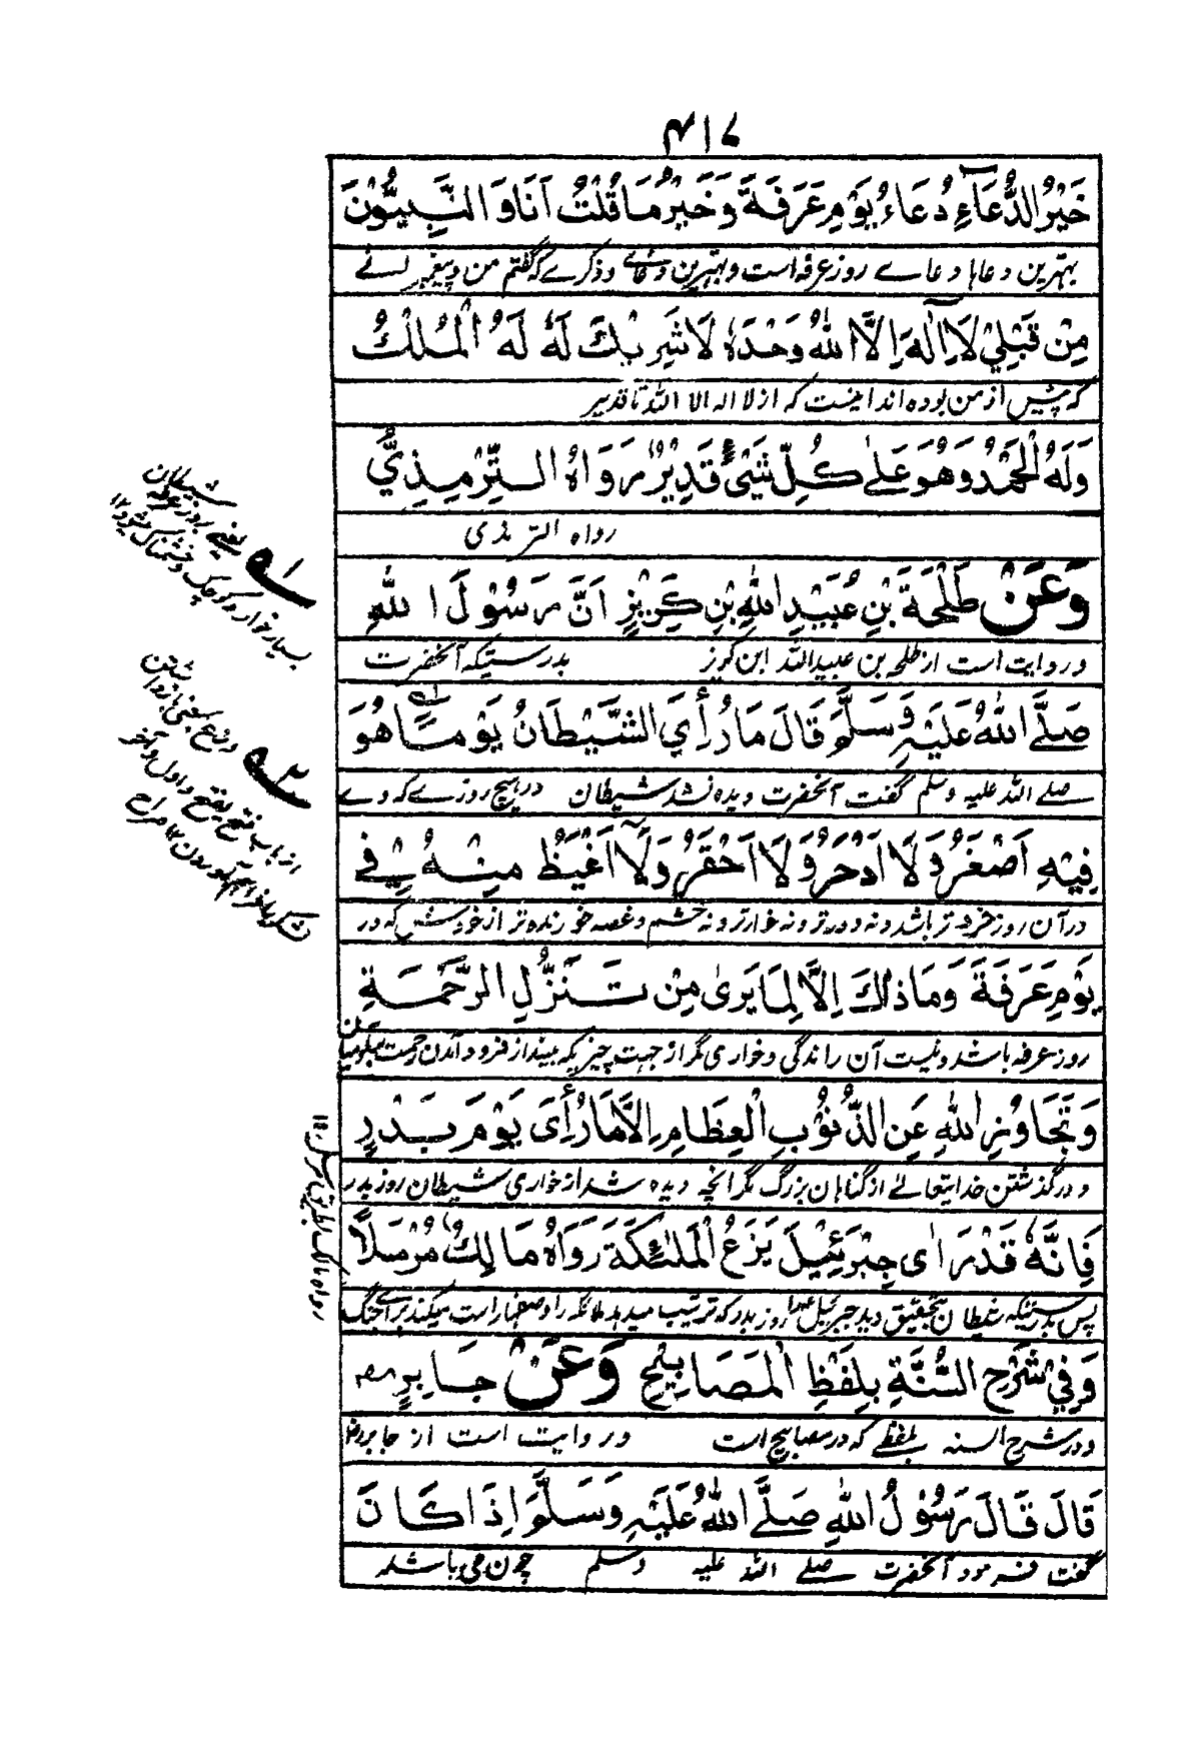 ۴۱۷
خَيْرُ الدُّعَآءِ دُعَاءُ يَوْمِ عَرَفَةَ وَخَيْرُ مَا قُلْتُ اَنَا وَ النَّبِيُّوْنَ
بہترین دعاها دعاے روز عرفه است و بہترین و ذکرے که گفتم من و پیغمبر
مِنْ قَبْلِيْ لَا اِلٰهَ اِلَّا اللهُ وَحْدَهٗ لَا شَرِيْكَ لَهٗ لَهُ الْمُلْكُ
که پیش از من بوده اند اینست که از لا اله الا الله تا قدیر
وَلَهُ الْحَمْدُ وَهُوَ عَلٰى كُلِّ شَيْءٍ قَدِيْرٌ رَوَاهُ التِّرْمِذِيُّ
رواه الترمذی
وَعَنْ طَلْحَةَ بْنِ عُبَيْدِ اللهِ بْنِ كَرِيْزٍ اَنَّ رَسُوْلَ اللهِ
و روایت است از طلحه بن عبید الله ابن کریز بدرستیکه آنحضرت
صَلَّے اللهُ عَلَيْهِ وَسَلَّمَ قَالَ مَا رُأِيَ الشَّيْطَانُ يَوْمًا هُوَ
صلے الله علیه وسلم گفت آنحضرت دیده نشد شیطان در هیچ روزے که وے
فِيْهِ اَصْغَرُ وَلَا اَدْحَرُ وَلَا اَحْقَرُ وَلَا اَغْيَظُ مِنْهُ فِيْ
در آن روز خردتر باشد و نه دورتر و نه خوارتر و نه خشم و غصه خورنده تر از خودش که در
يَوْمِ عَرَفَةَ وَمَا ذٰلِكَ اِلَّا لِمَا يَرٰى مِنْ تَنَزُّلِ الرَّحْمَةِ
روز عرفه باشد و نیست آن راندگی و خواری مگر از جهت چیزیکه بیند از فرود آمدن رحمت
وَتَجَاوُزِ اللهِ عَنِ الذُّنُوْبِ الْعِظَامِ اِلَّا مَا رُأِيَ يَوْمَ بَدْرٍ
و درگذشتن خدایتعالے از گناهان بزرگ مگر آنچه دیده شد از خواری شیطان روز بدر
فَاِنَّهٗ قَدْ رَاٰى جِبْرَئِيْلَ يَزَعُ الْمَلٰئِكَةَ رَوَاهُ مَالِكٌ مُرْسَلًا
پس بدرستیکه شیطان بتحقیق دید جبرئیل را روز بدر که ترتیب میدهد ملائکه را و صفها راست میکند برای جنگ
وَفِيْ شَرْحِ السُّنَّةِ بِلَفْظِ الْمَصَابِيْحِ وَعَنْ جَابِرٍ
و در شرح السنه بلفظے که در مصابیح است و روایت است از جابر رض
قَالَ قَالَ رَسُوْلُ اللهِ صَلَّے اللهُ عَلَيْهِ وَسَلَّمَ اِذَا كَانَ
گفت فرمود آنحضرت صلے الله علیه وسلم چون می باشد
۱ یعنے روز عرفه شیطان
بسیار خوار و کوچک و خشمناک میشود ۱۲
۲